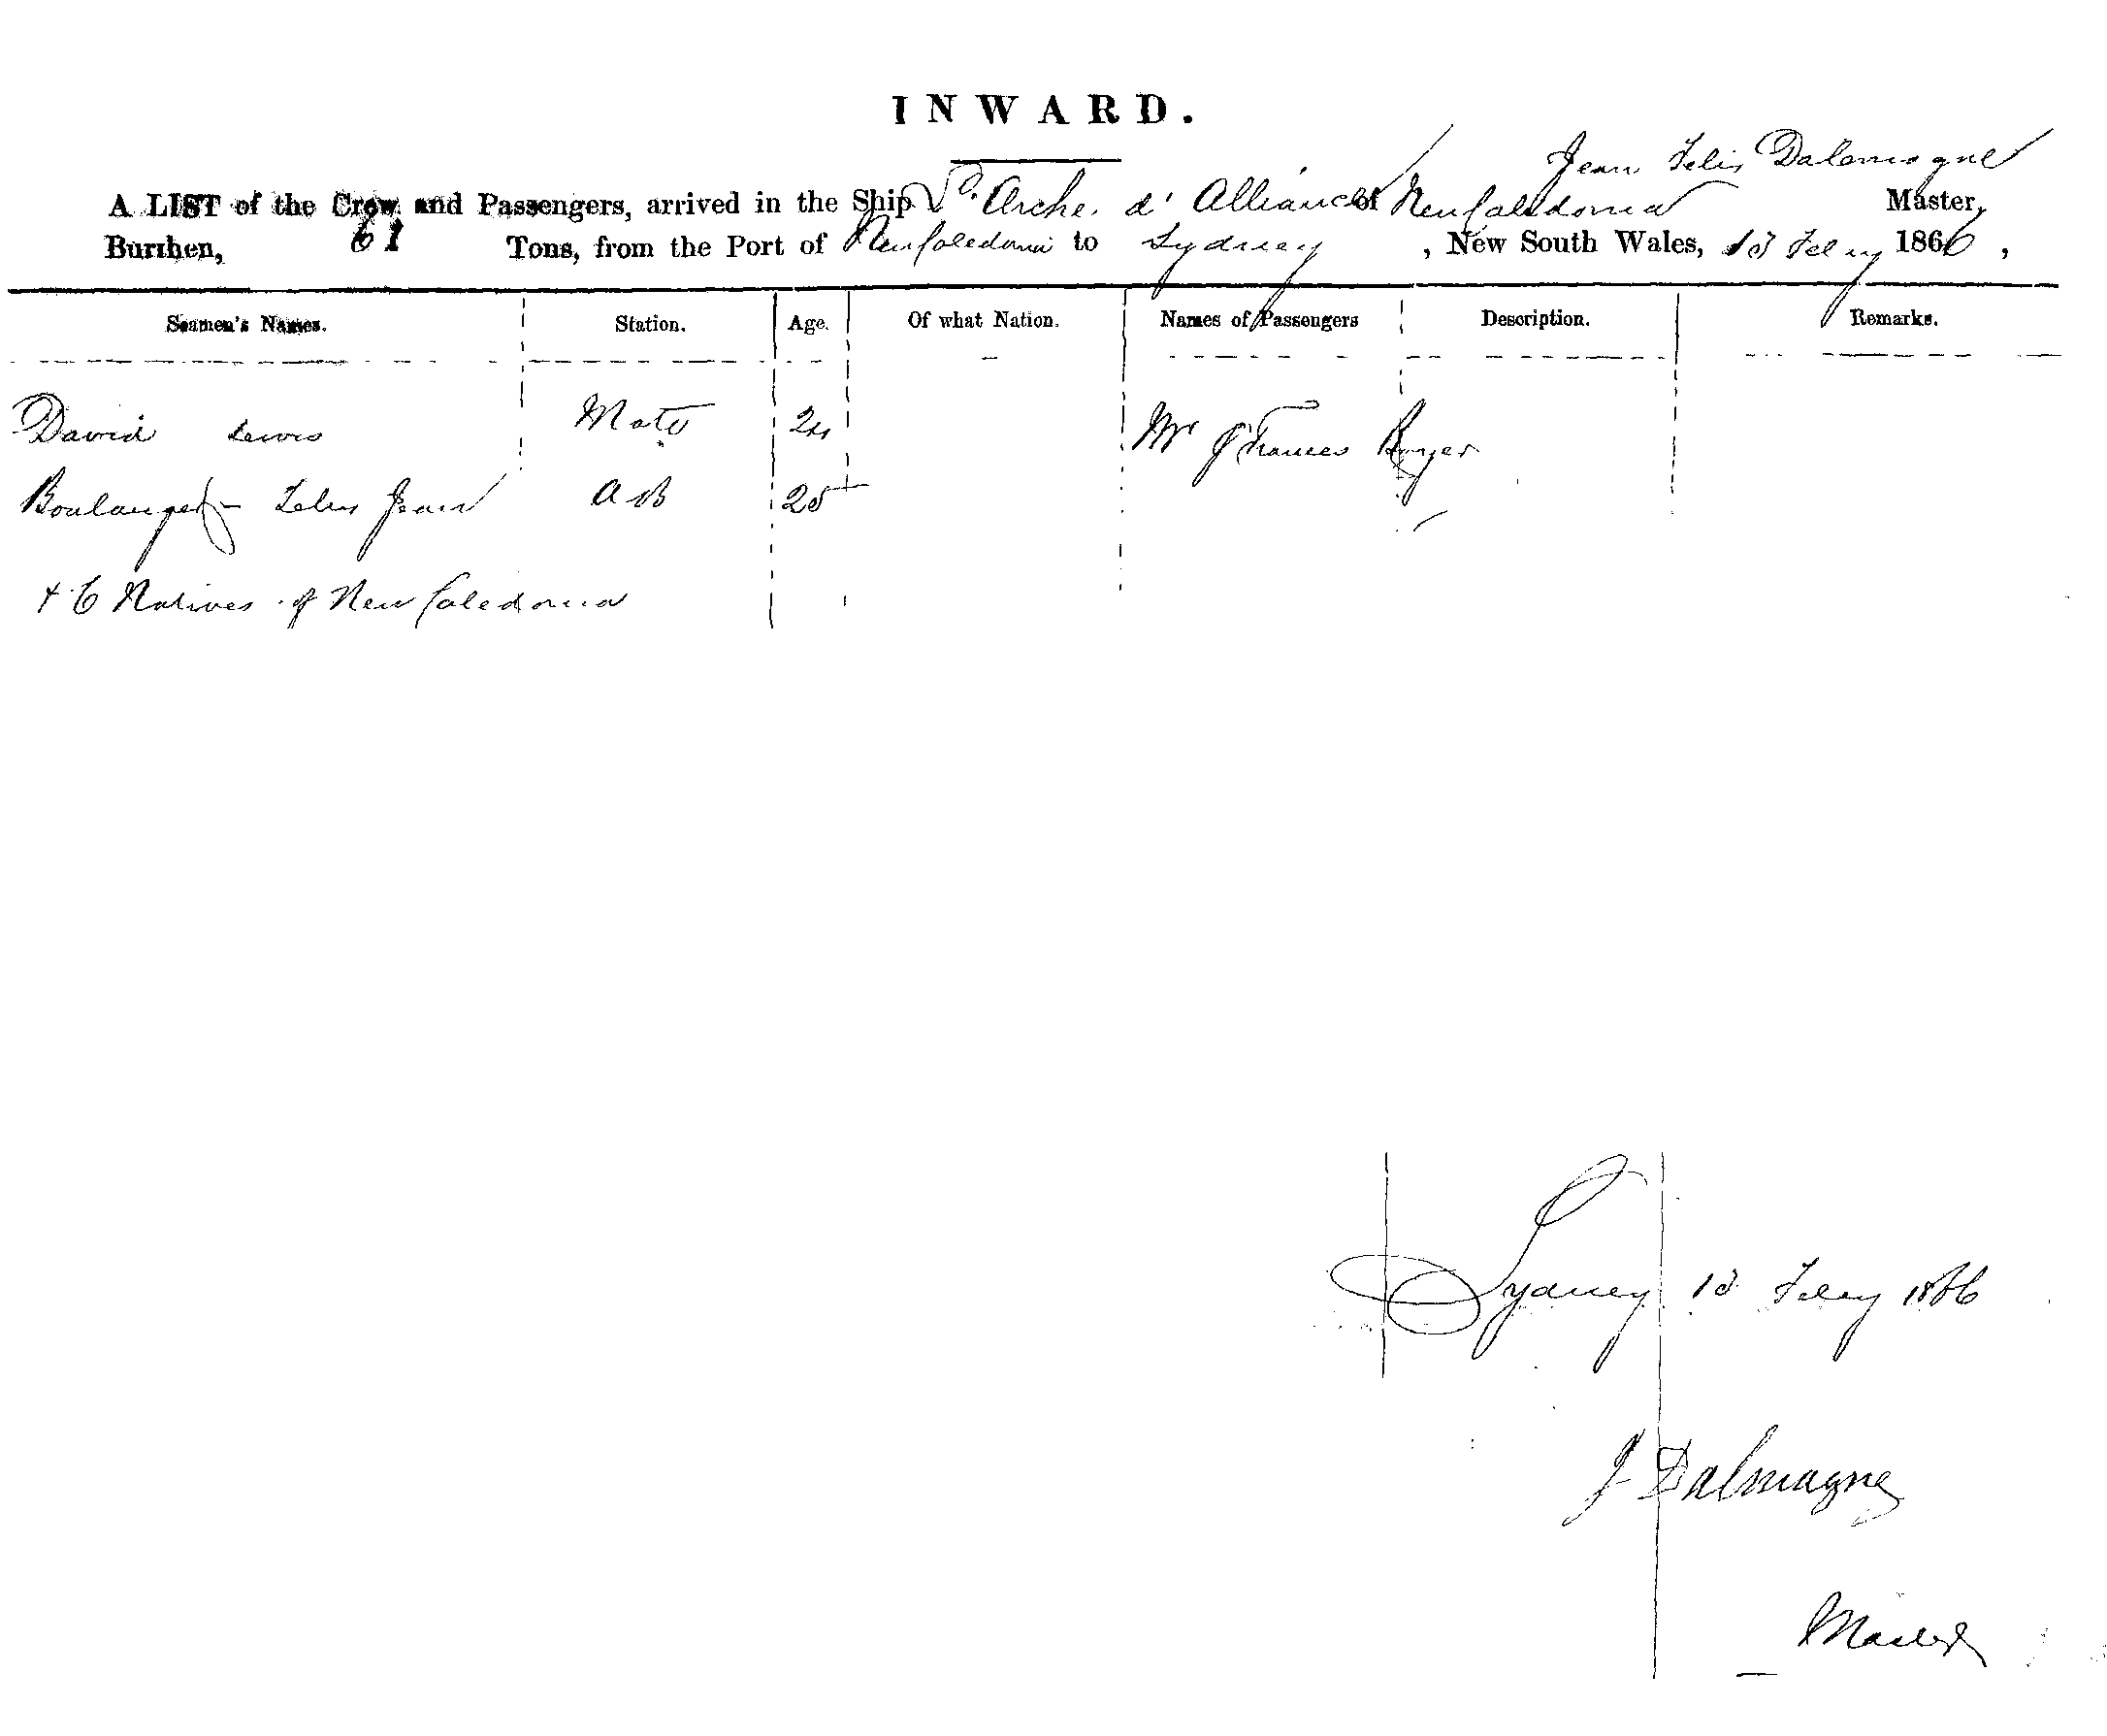 INWARD.
Jean Felix Dalamagne
A LIST of the Crew and Passengers, arrived in the Ship Arche d'Alliance of New Caledonia Master,
Burthen, 61 Tons, from the Port of New Caledonia to Sydney, New South Wales, 13 Feby 1866,
Seamen's Names. Station. Age. Of what Nation. Names of Passengers Description. Remarks.
David Lewis Mate 24 Mr Frances Boyer
Boulanger Felix Jean AB 25
+ 6 Natives of New Caledonia
Sydney 13 Feby 1866
J Dalmagne
Master